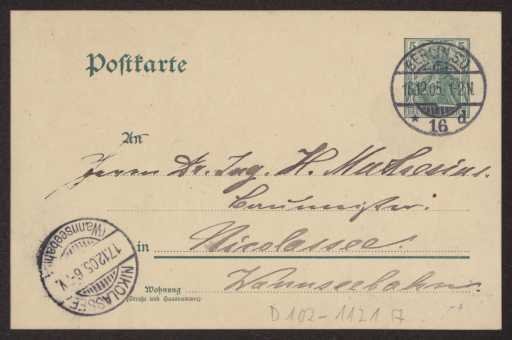 Postkarte
5 5
BERLIN S.W.
16.12.05. 1-2N.
* 16 d
An
Herrn Dr. Ing. H. Muthesius.
Baumeister.
in Nicolassee.
Wannseebahn.
NIKOLASSEE
17.12.05. 6-7V.
(Wannseebahn)
Wohnung
(Straße und Hausnummer)
D 102-1121 a